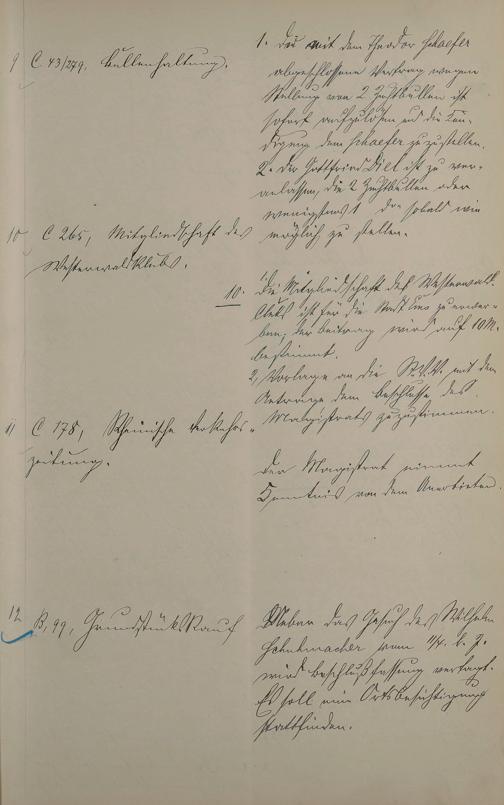 9 C 43/249, Bullenhaltung.
1. Der mit dem Theodor Schaefer
abgeschlossene Vertrag wegen
Stellung von 2 Zuchtbullen ist
sofort aufzulösen und die Kün-
digung dem Schaefer zuzustellen.
2. Der Gottfried Diel ist zu ver-
anlassen, die 2 Zuchtbullen oder
wenigstens 1 do. sobald wie
möglich zu stellen.
10 C 265, Mitgliedschaft des
Westerwaldklubs.
10. 1, Die Mitgliedschaft des Westerwald-
Clubs ist für die Stadt Ems zu erwer-
ben; der Beitrag wird auf 10 M.
bestimmt.
2, Vorlage an die St.V.V. mit dem
Antrage dem Beschlusse des
Magistrats zuzustimmen.
11 C 178, Rheinische Verkehrs-
zeitung.
Der Magistrat nimmt
Kenntnis von dem Anerbieten.
12 B, 99, Grundstückskauf
Ueber das Gesuch des Wilhelm
Schuhmacher vom 11/4. d. J.
wird Beschlußfassung vertagt.
Es soll eine Ortsbesichtigung
stattfinden.